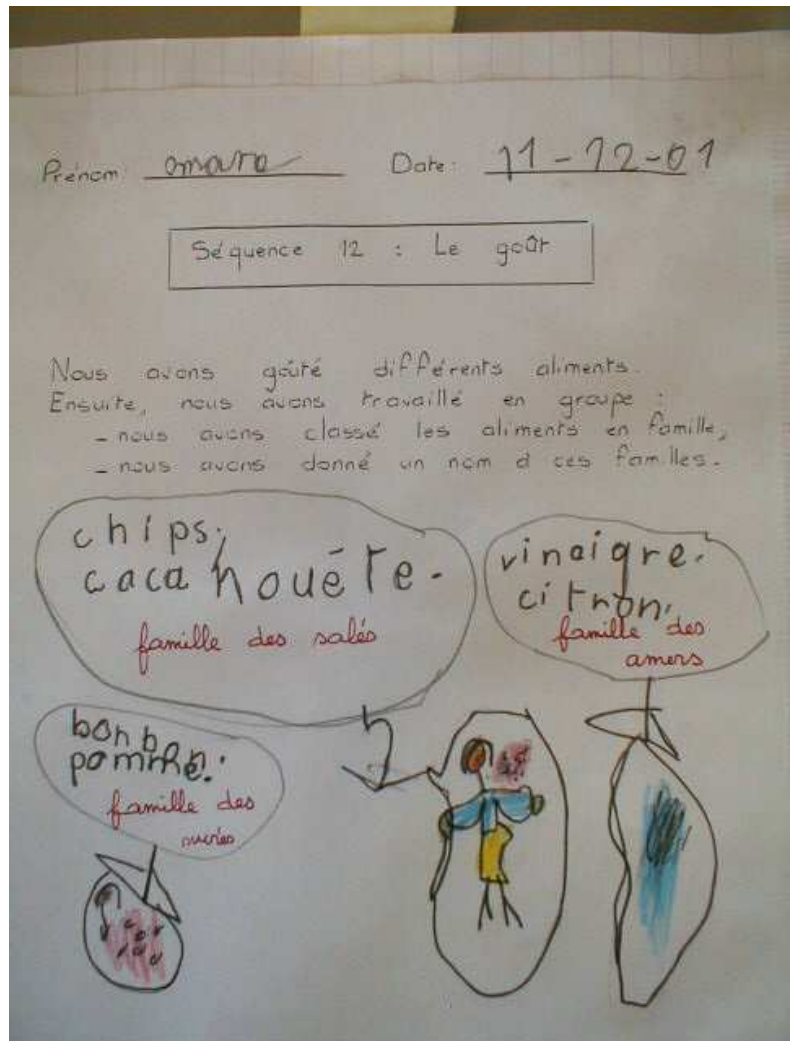 Prénom: omaro Date: 11-12-01
Séquence 12 : Le goût
Nous avons goûté différents aliments.
Ensuite, nous avons travaillé en groupe :
- nous avons classé les aliments en famille,
- nous avons donné un nom à ces familles.
chips,
cacahouéte.
famille des salés
vinaigre.
citron.
famille des
amers
bonbon
pomme.
famille des
sucrés